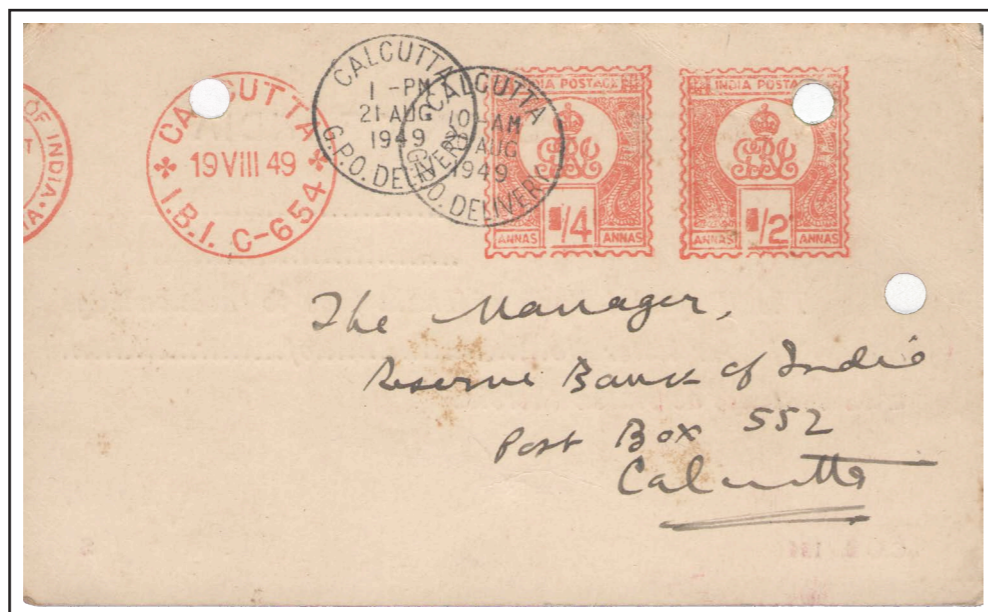 OF INDIA
CALCUTTA
19 VIII 49
I.B.I. C-654
CALCUTTA
1-PM
21 AUG
1949
G.P.O. DELIVERY
CALCUTTA
10-AM
AUG
1949
G.P.O. DELIVERY
INDIA POSTAGE
1/4
ANNAS ANNAS
INDIA POSTAGE
1/2
ANNAS ANNAS
The Manager,
Reserve Bank of India
Post Box 552
Calcutta